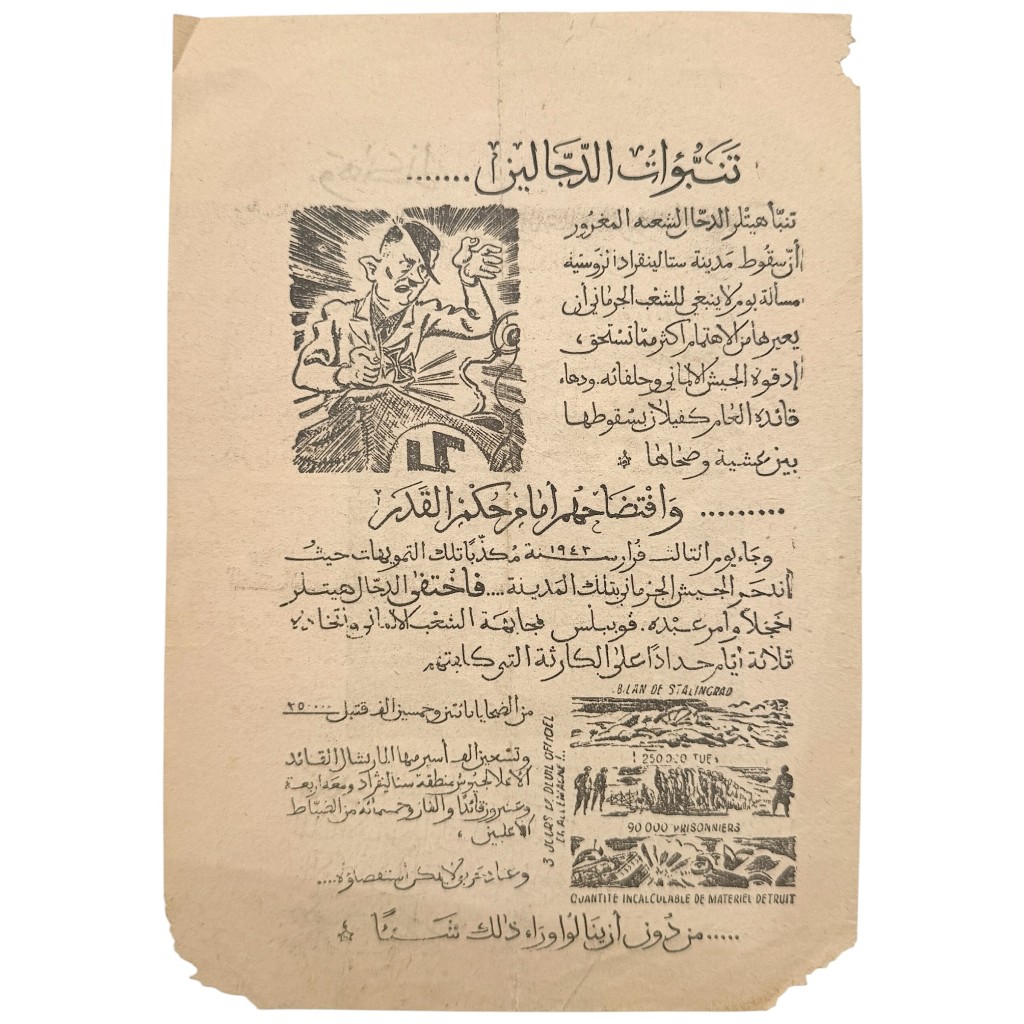 تَنَبُّؤاتُ الدَّجَّالين .......
تنبّأ هيتلر الدجّال الشعنه المغرور
أنّ سقُوط مَدينة ستالينغراد الرّوسية
مسألة يوم لا ينبغي للشعب الجرماني أن
يعيرها من الاهتمام أكثر ممّا تستحق ،
إذ قوة الجيش الألماني وحلفائه . ودهاء
قائده العام كفيلان بسقوطها
بين عشية وضحاها
......... وَافْتضَاحُهُم أمَام حُكْم القَدَر
وجاء يوم الثالث فبرار سنة ١٩٤٣ مُكذّبا تلك التمويهات حيث
اندحر الجيش الجرماني بتلك المَدينة .... فاخْتفى الدجّال هيتلر
خجلاً وأمر عبْده . قوبلس بمجابهة الشعب الألماني واتخاذ
ثلاثة أيّام حدادًا على الكارثة التي كابدتهم
من الضحايا مائتين وخمسين الف قتيل ٢٥٠٠٠٠
وتسعين الف أسير منها الماريشال القائد
الأعلا لجيوش منطقة ستالينڤراد ومعه اربعة
وعشرون قائدًا والفان وخمسمائة من الضبّاط
الأعليين ،
وعتاد حربي لا يمكن استقصاؤه ....
BILAN DE STALINGRAD
250000 TUES
90000 PRISONNIERS
QUANTITE INCALCULABLE DE MATERIEL DETRUIT
3 JOURS DE DEUIL OFFICIEL
EN ALLEMAGNE !...
..... من دُون أن ينالُوا ورَاء ذلك شَيئًا